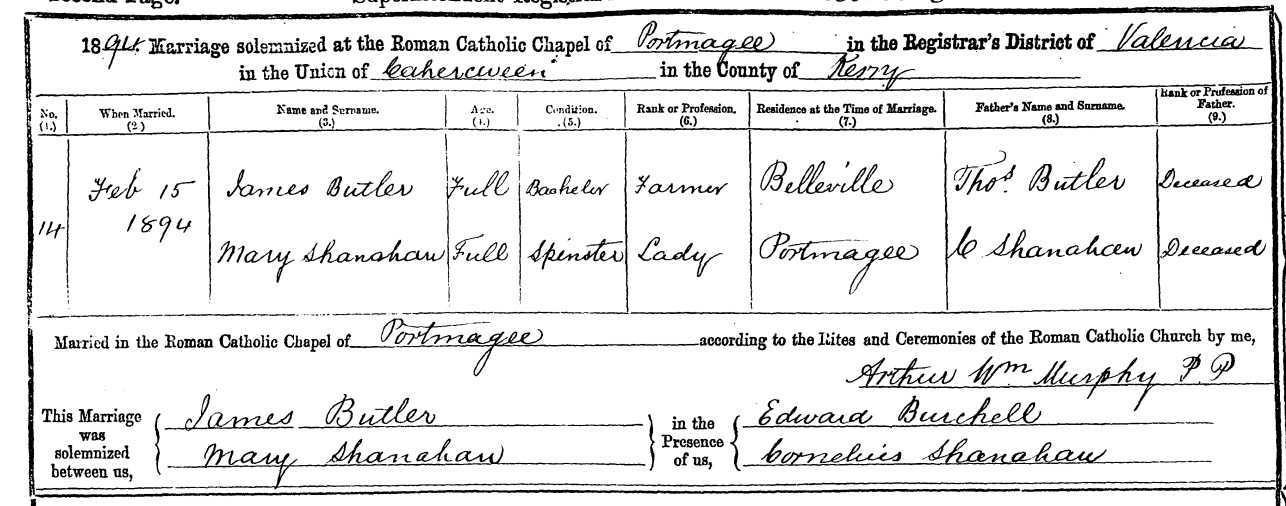 Second Page.
1894. Marriage solemnized at the Roman Catholic Chapel of Portmagee in the Registrar's District of Valencia
in the Union of Caherciveen in the County of Kerry
No. When Married. Name and Surname. Age. Condition. Rank or Profession. Residence at the Time of Marriage. Father's Name and Surname. Rank or Profession of Father.
(1.) (2) (3.) (4.) (5.) (6.) (7.) (8.) (9.)
Feb 15 James Butler Full Bachelor Farmer Belleville Thos. Butler Deceased
14 1894
Mary Shanahan Full Spinster Lady Portmagee C Shanahan Deceased
Married in the Roman Catholic Chapel of Portmagee according to the Rites and Ceremonies of the Roman Catholic Church by me,
Arthur Wm Murphy P P
This Marriage was solemnized between us, James Butler in the Presence of us, Edward Burchell
Mary Shanahan Cornelius Shanahan